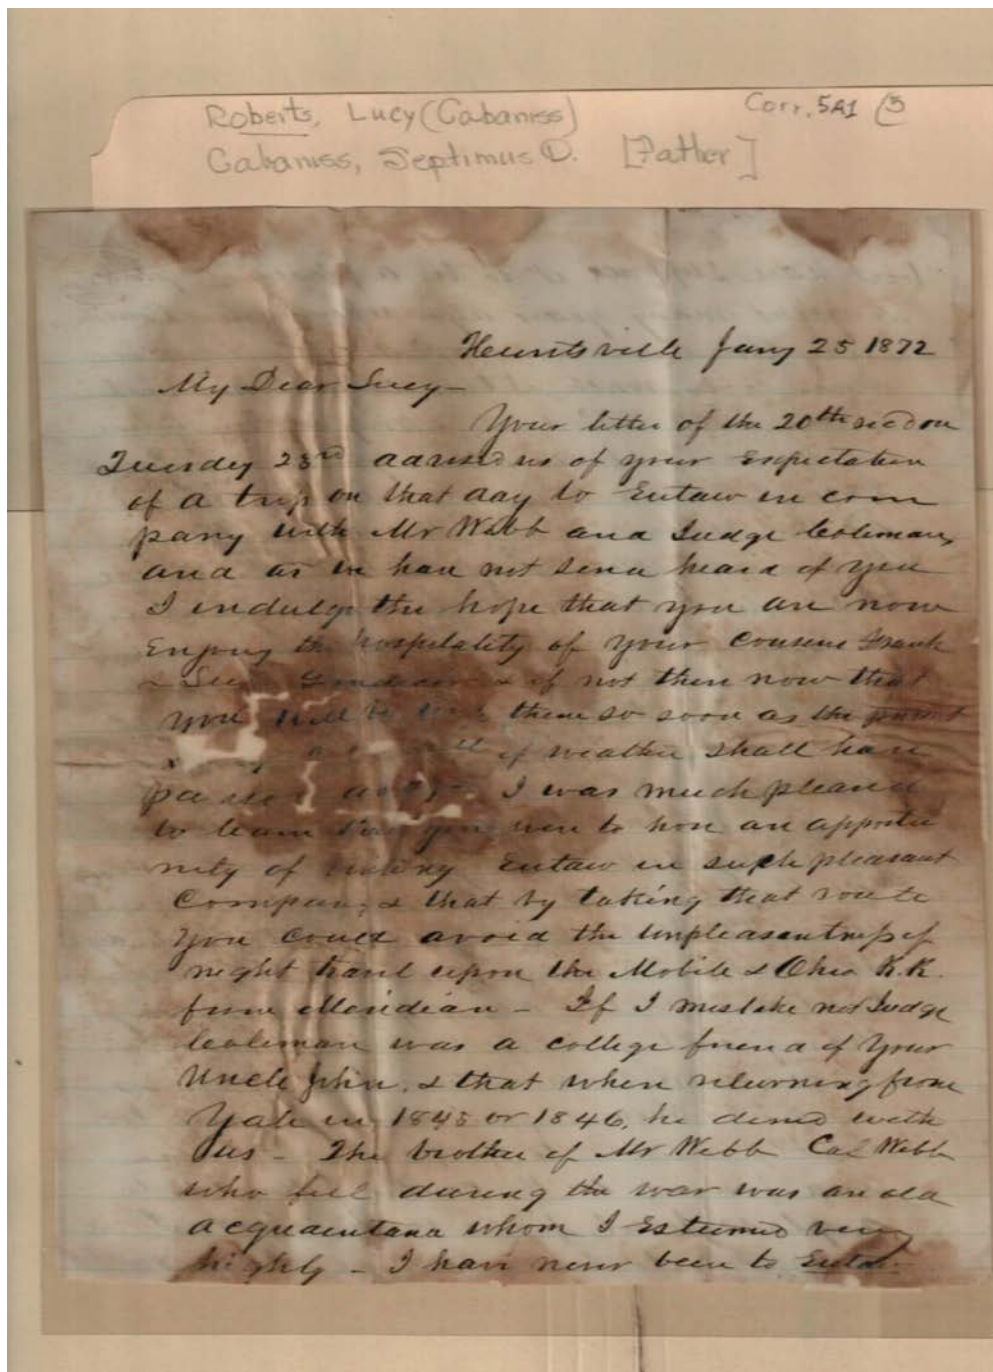 Roberts, Lucy (Cabaniss)
Corr. 5A1 (3
Cabaniss, Septimus D. [Father]
Huntsville Jany 25 1872
My Dear Lucy–
Your letter of the 20th recd on
Tuesday 23rd advised us of your expectation
of a trip on that day to Eutaw in com
pany with Mr Webb and Judge Coleman,
and as we have not since heard of you
I indulge the hope that you are now
enjoying the hospitality of your Cousins Frank
& & if not there now that
you will be with them so soon as the present
of weather shall have
passed I was much pleased
to learn that you were to have an opportu
nity of visiting Eutaw in such pleasant
Company & that by taking that route
you could avoid the unpleasantness of
night travel upon the Mobile & Ohio R.R.
from Meridian – If I mistake not Judge
Coleman was a college friend of your
Uncle John, & that when returning from
Yale in 1845 or 1846, he dined with
us – The brother of Mr Webb Col Webb
who fell during the war was an old
acquaintance whom I esteemed very
highly – I have never been to Eutaw